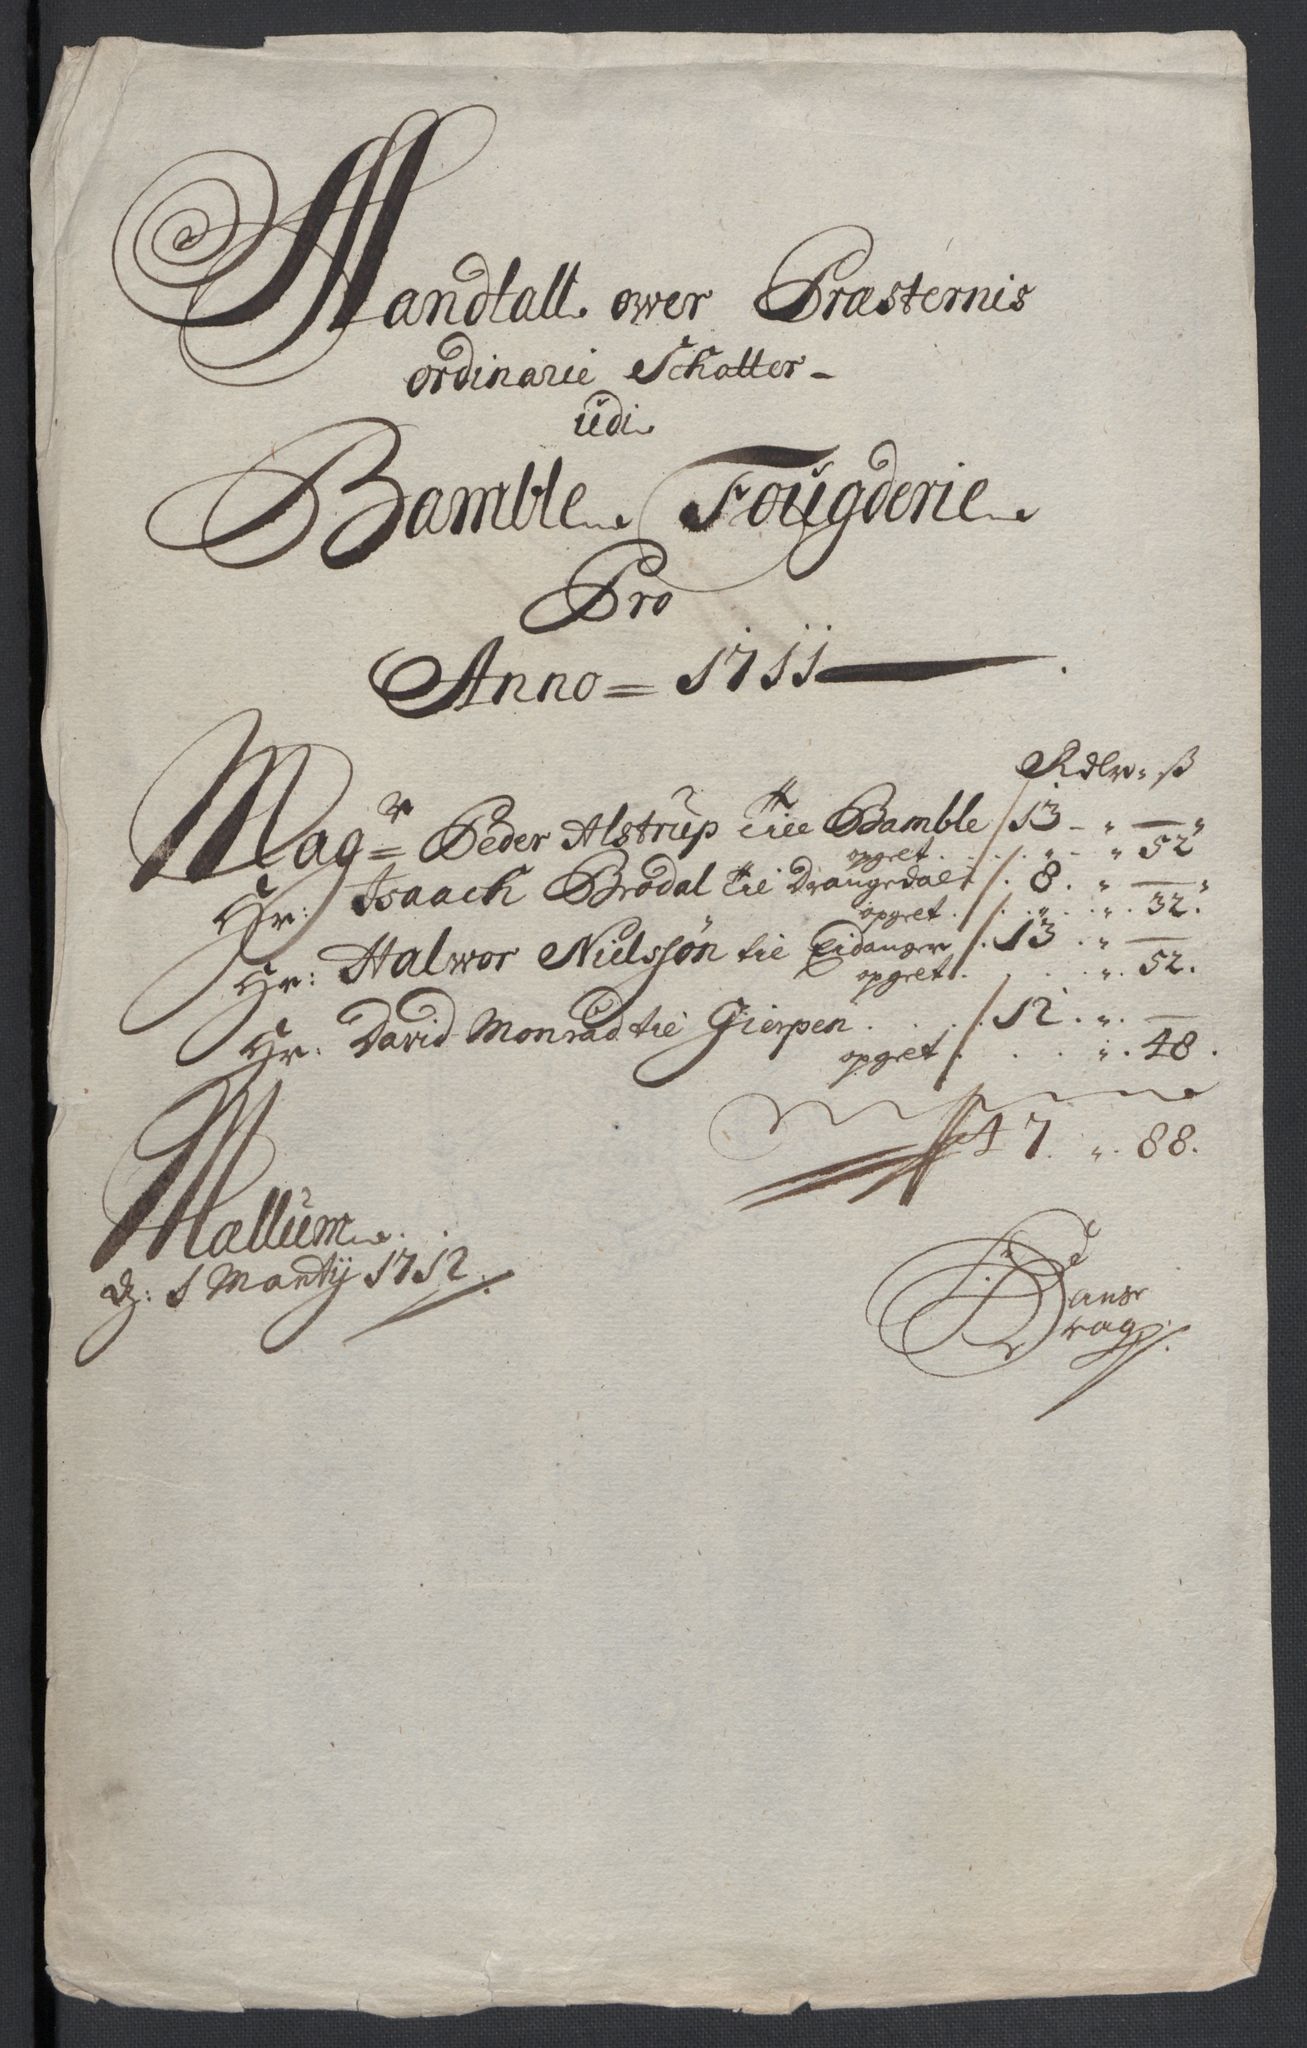 Mandtall ower Præsternis
ordinarie Schatter-
udi
Bamble Fougderie
Pro
Anno = 1711
Rdlr " ß
Magr = Peder Alstrup till Bamble 13 - " —
opgret . . . " 52 "
Hr: Isaach Brodal til Drangedal . 8 . " —
opgret . . . " . 32 .
Hr: Halwor Nielssøn til Eidanger . 13 . " —
opgret . . . " . 52 .
Hr: David Monrad til Gierpen . . . 12 . " . —
opgret . . . " . 48 .
47 . " . 88 .
Mællum
d: 1 Marty 1712